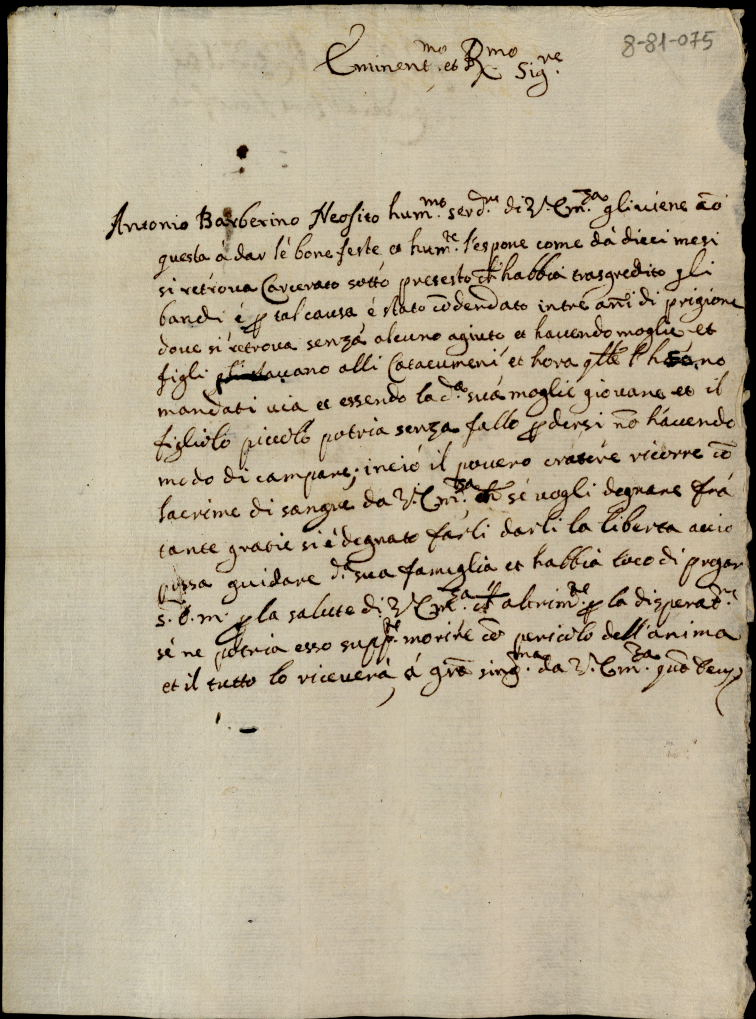 8-81-075
Eminent.mo et R.mo Sig.re
Antonio Barberino Neofito hum.mo serd.re di V. Em.za gli viene cō
questa à dar lé bone feste et hum.te l'espone come dà dieci mesi
si retrova Carcerato sottò pretesto ch̄ habbia trasgredito gli
bandi é p tal causa é stato cōdendato intré anni di prigione
dove si retrova senzá alcuno agiuto et havendo moglie et
figli stavano alli Catacumeni et hora q̄lle l'hanno
mandati via et essendo la d.a suá moglie giovane et il
figliolo piccolo potria senza fallo pdersi nō hávendo
modo di campare; inció il povero oratore ricorre cō
lacrime di sangue da V. Em.za ch̄ sé vogli degnare frá
tante gratie si é degnato farli darli la liberta acciò
possa guidare d.a sua famiglia et habbia loco di pregar
s. d. m. p la salute di V. Em.za ch̄ altrim.te p la disperat.ne
sé ne potria esso supp.te morire cō pericolo dell'anima
et il tutto lo riceverá á grā sing.ma da V. Em.za quā Deus